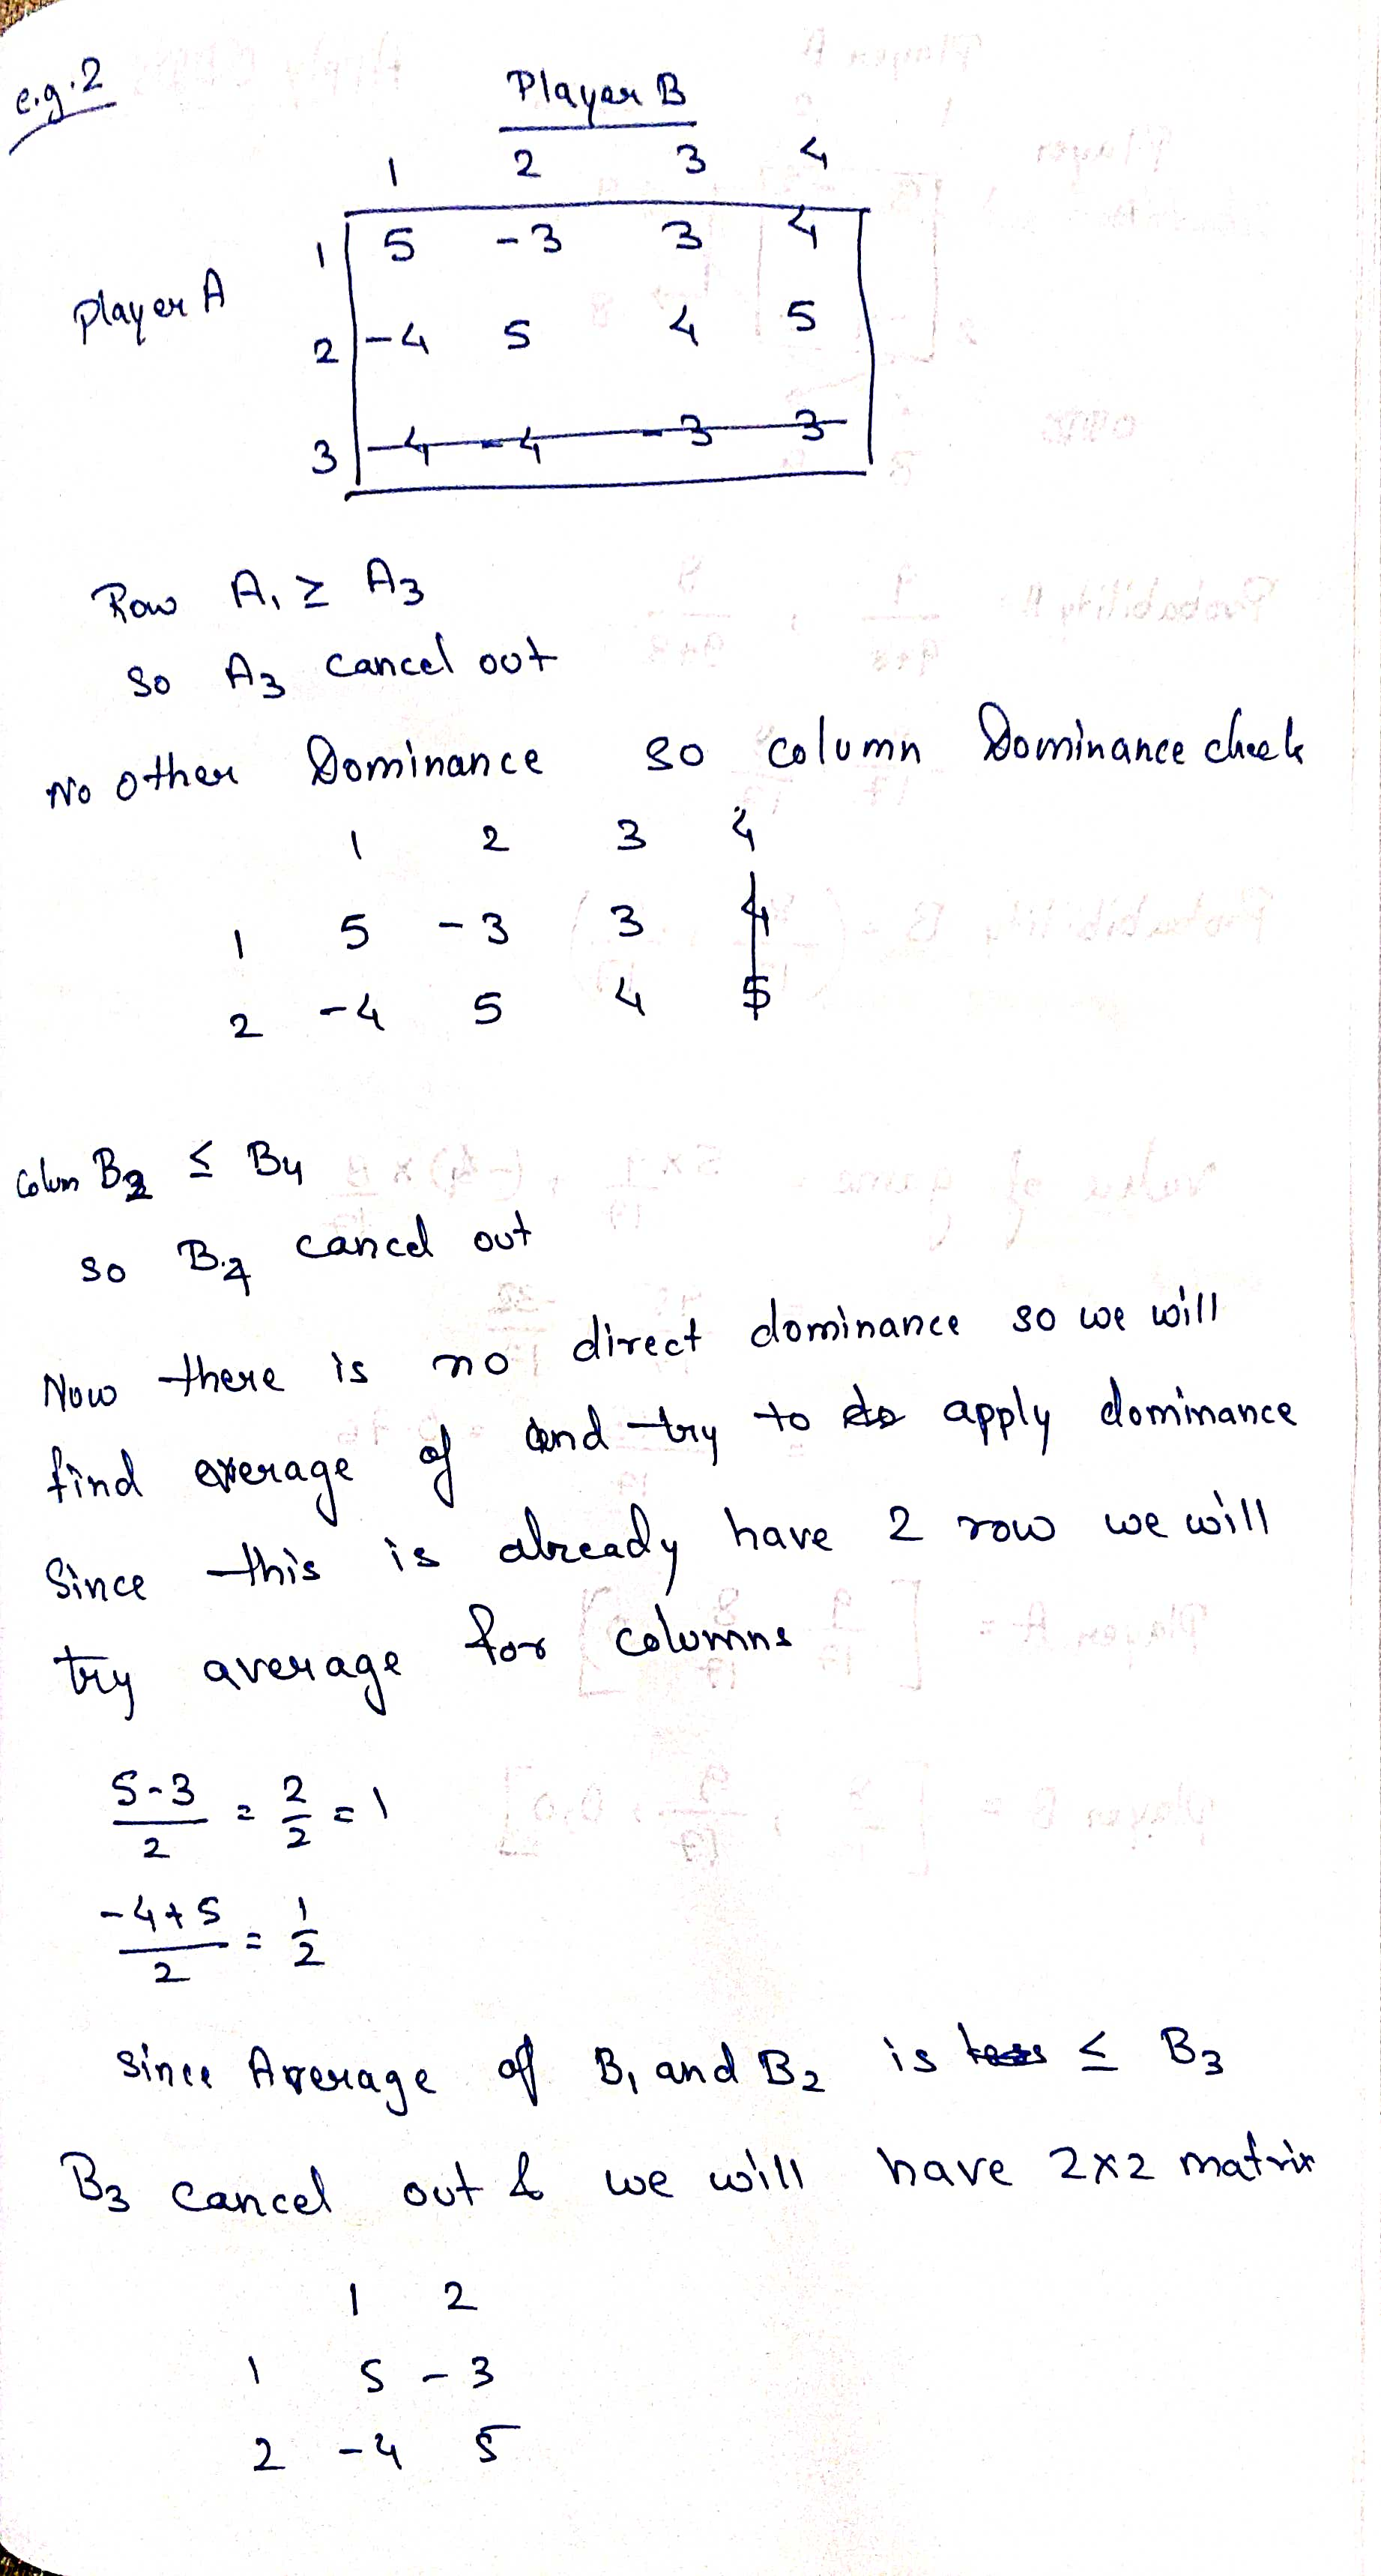 e.g.2
Player B
1 2 3 4
1 5 -3 3 4
Player A
2 -4 5 4 5
3 4 -4 -3 3
Row A1 ≥ A3
So A3 cancel out
No other Dominance so column Dominance check
1 2 3 4
1 5 -3 3 4
2 -4 5 4 5
Colum B2 ≤ B4
so B4 cancel out
Now there is no direct dominance so we will
find average of and try to do apply dominance
Since this is already have 2 row we will
try average for columns
5-3/2 = 2/2 = 1
-4+5/2 = 1/2
since Average of B1 and B2 is less ≤ B3
B3 cancel out & we will have 2x2 matrix
1 2
1 5 -3
2 -4 5